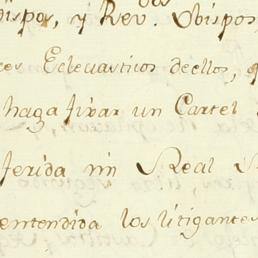 ispos, y Rev. Obispos
ces Eclecuasticos deellos,
haga fixar un Cartel
ferida mi Real
entendida los litigantes